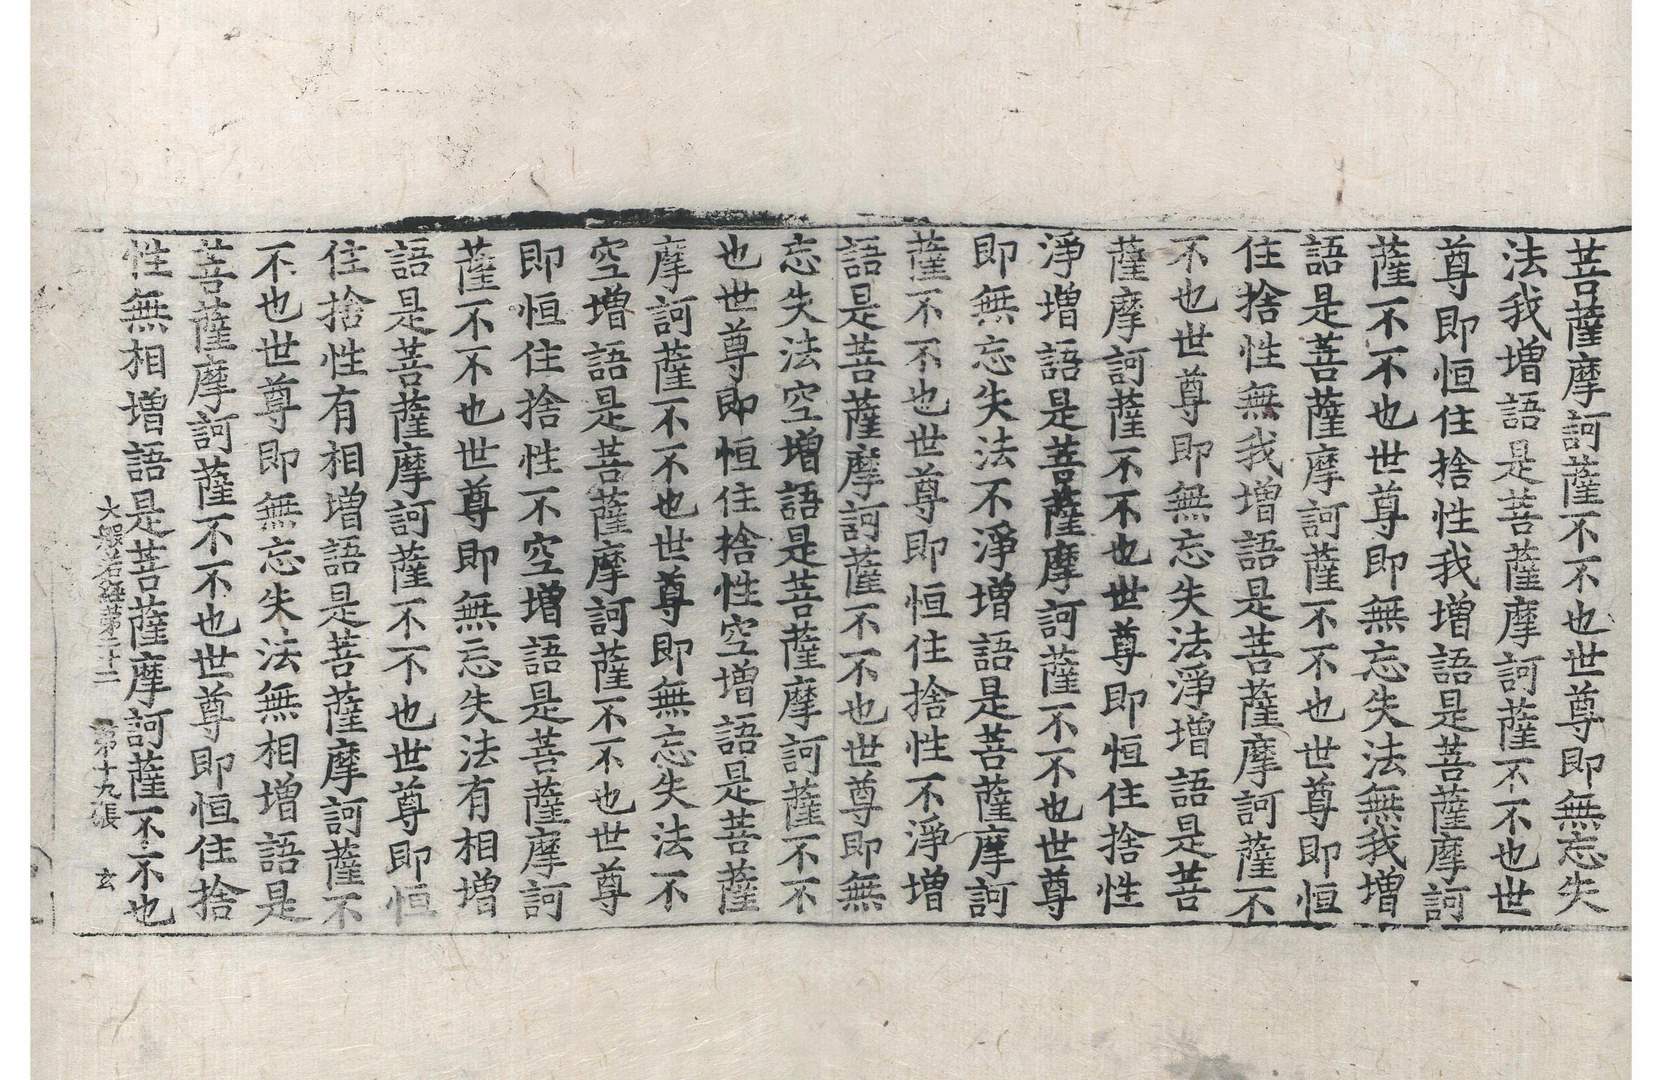 菩薩摩訶薩不不也世尊即無忘失
法我增語是菩薩摩訶薩不不也世
尊即恒住捨性我增語是菩薩摩訶
薩不不也世尊即無忘失法無我增
語是菩薩摩訶薩不不也世尊即恒
住捨性無我增語是菩薩摩訶薩不
不也世尊即無忘失法淨增語是菩
薩摩訶薩不不也世尊即恒住捨性
淨增語是菩薩摩訶薩不不也世尊
即無忘失法不淨增語是菩薩摩訶
薩不不也世尊即恒住捨性不淨增
語是菩薩摩訶薩不不也世尊即無
忘失法空增語是菩薩摩訶薩不不
也世尊即恒住捨性空增語是菩薩
摩訶薩不不也世尊即無忘失法不
空增語是菩薩摩訶薩不不也世尊
即恒住捨性不空增語是菩薩摩訶
薩不不也世尊即無忘失法有相增
語是菩薩摩訶薩不不也世尊即恒
住捨性有相增語是菩薩摩訶薩不
不也世尊即無忘失法無相增語是
菩薩摩訶薩不不也世尊即恒住捨
性無相增語是菩薩摩訶薩不不也
大般若經第二十二 第十九張 玄